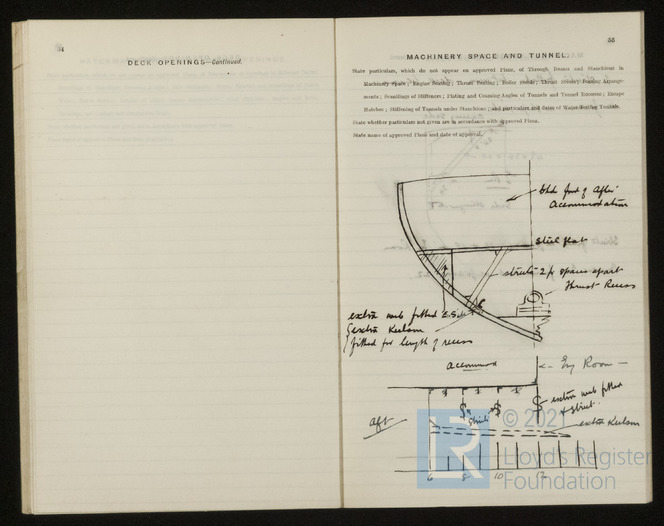 54
DECK OPENINGS—Continued.
55
MACHINERY SPACE AND TUNNEL.
State particulars, which do not appear on approved Plans, of Through Beams and Stanchions in
Machinery Space; Engine Seating; Thrust Seating; Boiler Seats; Thrust Seating Arrange-
ments; Scantlings of Stiffeners; Plating and Coaming Angles of Tunnels and Tunnel Recesses; Escape
Hatches; Stiffening of Tunnels under Stanchions; and particulars and dates of Water Testing Tunnels.
State whether particulars not given are in accordance with approved Plans.
State name of approved Plans and date of approval.
Bhd ford of After
Accommodation
steel flat
struts 2 fr spaces apart
Thrust Recess
extra web fitted E.S.
& extra Keelson
fitted for length of recess
Accommod
<- Eng Room -
extra web fitted
& strut.
Struts
Aft
extra Keelson
6 8 10 12
© 2021
LR
Lloyd's Register
Foundation